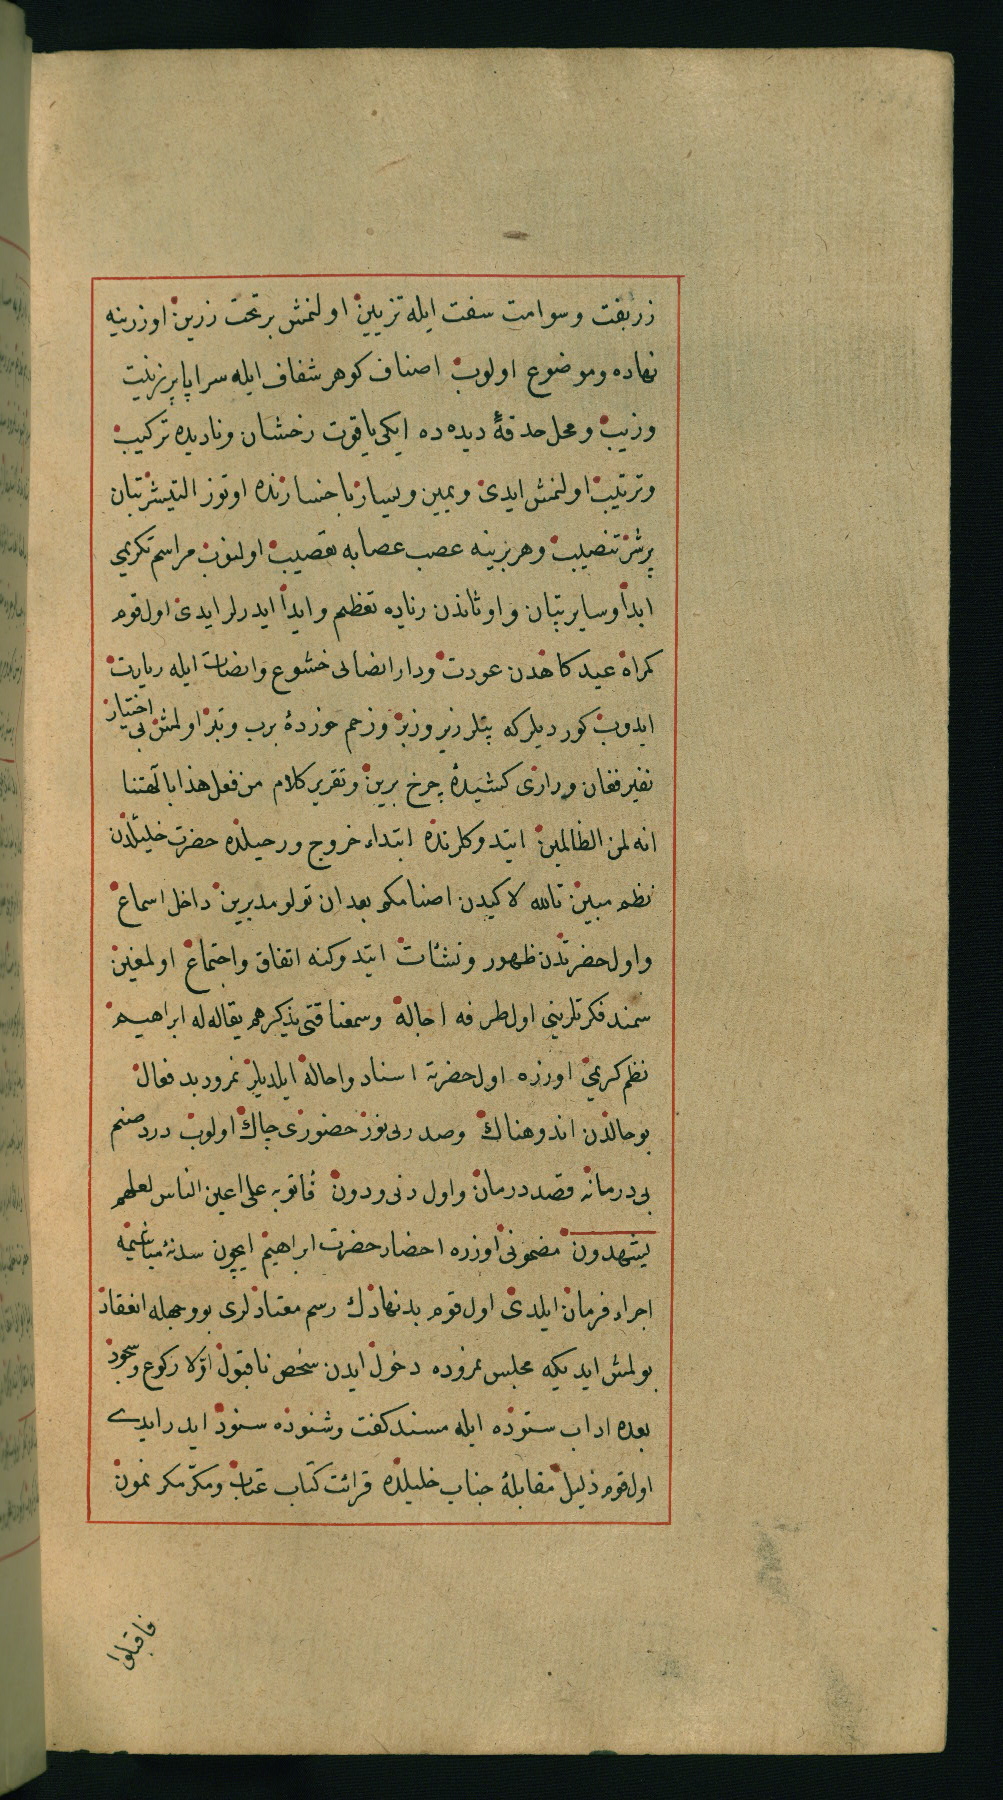 زربفت وسوامت سفت ایله تزیین اولنمش برتخت زرین اوزرینه
نهاده وموضوع اولوب اصناف کوهر شفاف ایله سراپا پرزینت
وزیب ومحل حدقهٔ دیده ده ایکی یاقوت رخشان ونادیده ترکیب
وترتیب اولنمش ایدی ویمین ویسار ناجنسارنده اوتوز التیشر بتان
پرشر تنصیب وهربرینه عصب عصابه تعصیب اولنوب مراسم تکریمی
ابدا وسایر بتان واوثاندن زیاده تعظیم وایدا ایدرلر ایدی اول قوم
کمراه عیدکاهدن عودت ودار انصابی خشوع وانصات ایله زیارت
ایدوب کوردیلرکه بتلر زیر وزبر وزخم خوردهٔ برب وتبر اولمش بی اختیار
نفیر فغان وزاری کشیدهٔ چرخ برین وتقریر کلام من فعل هذا بآلهتنا
انه لمن الظالمین ایتدوکلرنده ابتداء خروج ورحیلده حضرت خلیلدن
نظم مبین تالله لاکیدن اصنامکم بعد ان تولو مدبرین داخل اسماع
واول حضرتدن ظهور ونشأت ایتدوکنه اتفاق واجتماع اولمغین
سمند فکرتلرینی اول طرفه اجاله وسمعنا فتی یذکرهم یقال له ابراهیم
نظم کریمی اوزره اول حضرته اسناد واحاله ایلدیلر نمرود بد فعال
بو حالدن اندوهناك وصدر بی نور حضوری چاك اولوب درد صنم
بی درمانه قصد درمان واول دنی ودون فأتوبه علی اعین الناس لعلهم
یشهدون مضمونی اوزره احضار حضرت ابراهیم ایچون سدنهٔ
اجراء فرمان ایلدی اول قوم بدنهادك رسم معتادلری بووجهله انعقاد
بولمش ایدیکه مجلس نمروده دخول ایدن شخص ناقبول اولا رکوع وسجود
بعده اداب ستوده ایله مسند کفت وشنوده سنود ایدر ایدی
اول قوم ذلیل مقابلهٔ جناب خلیلده قرائت کتاب عتاب ومکر مکر نمون
فاقبلوا